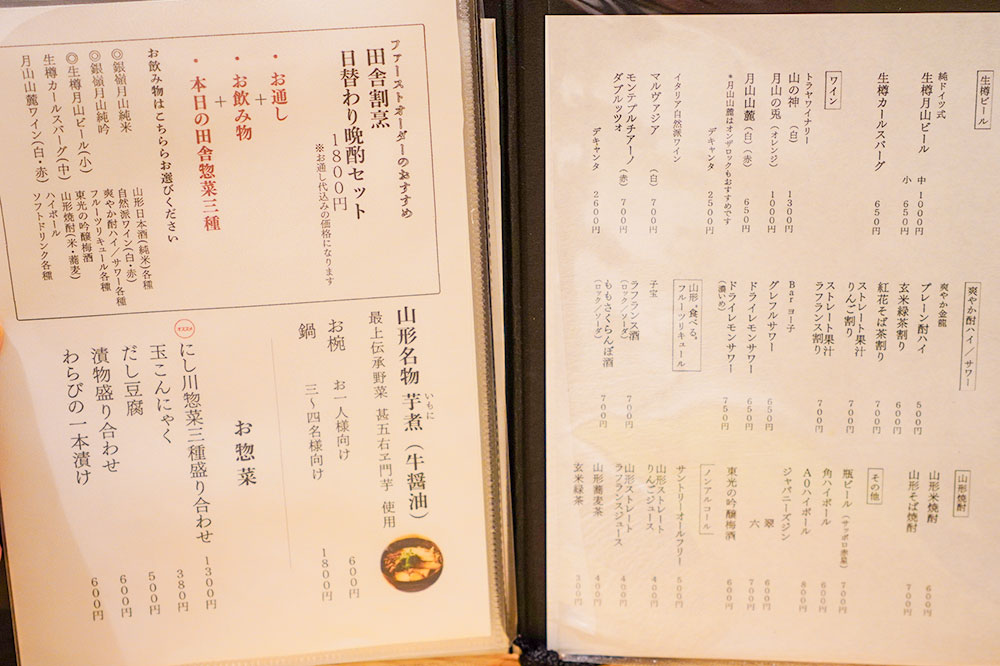 ファーストオーダーのおすすめ
田舎割烹
日替わり晩酌セット
1800円
※お通し代込みの価格になります
・お通し
+
・お飲み物
+
・本日の田舎惣菜三種
お飲み物はこちららお選びください
◎銀嶺月山純米
◎銀嶺月山純吟
◎生樽月山ビール(小)
生樽カールスバーグ(中)
月山山麓ワイン(白・赤)
山形日本酒(純米)各種
自然派ワイン(白・赤)
爽やか酎ハイ／サワー各種
フルーツリキュール各種
東光の吟醸梅酒
山形焼酎(米・蕎麦)
ハイボール
ソフトドリンク各種
山形名物 芋煮(牛醤油)
いもに
最上伝承野菜 甚五右ヱ門芋 使用
お椀 お一人様向け 600円
鍋 三〜四名様向け 1800円
お惣菜
オススメ
にし川惣菜三種盛り合わせ 1300円
玉こんにゃく 380円
だし豆腐 500円
漬物盛り合わせ 600円
わらびの一本漬け 600円
生樽ビール
純ドイツ式
生樽月山ビール 中 1000円
小 650円
生樽カールスバーグ 650円
ワイン
トラヤワイナリー
山の神(白) 1300円
月山の兎(オレンジ) 1000円
月山山麓(白)(赤) 650円
*月山山麓はオンザロックもおすすめです
デキャンタ 2500円
イタリア自然派ワイン
マルヴァジア (白) 700円
モンテプルチアーノ
ダブルッツォ (赤) 700円
デキャンタ 2600円
爽やか酎ハイ／サワー
爽やか金龍
プレーン酎ハイ 500円
玄米緑茶割り 600円
紅花そば茶割り 700円
ストレート果汁
りんご割り 700円
ストレート果汁
ラフランス割り 700円
Bar ヨー子
グレフルサワー 650円
ドライレモンサワー 650円
ドライレモンサワー
(濃いめ) 750円
山形〝食べる〟
フルーツリキュール
子宝
ラフランス酒
(ロック／ソーダ) 700円
ももさくらんぼ酒
(ロック／ソーダ) 700円
山形焼酎
山形米焼酎 600円
山形そば焼酎 700円
その他
瓶ビール(サッポロ赤星) 700円
角ハイボール 600円
AOハイボール 800円
ジャパニーズジン
翠 600円
六 700円
東光の吟醸梅酒 600円
ノンアルコール
サントリーオールフリー 500円
山形ストレート
りんごジュース 400円
山形ストレート
ラフランスジュース 400円
山形蕎麦茶 400円
玄米緑茶 300円